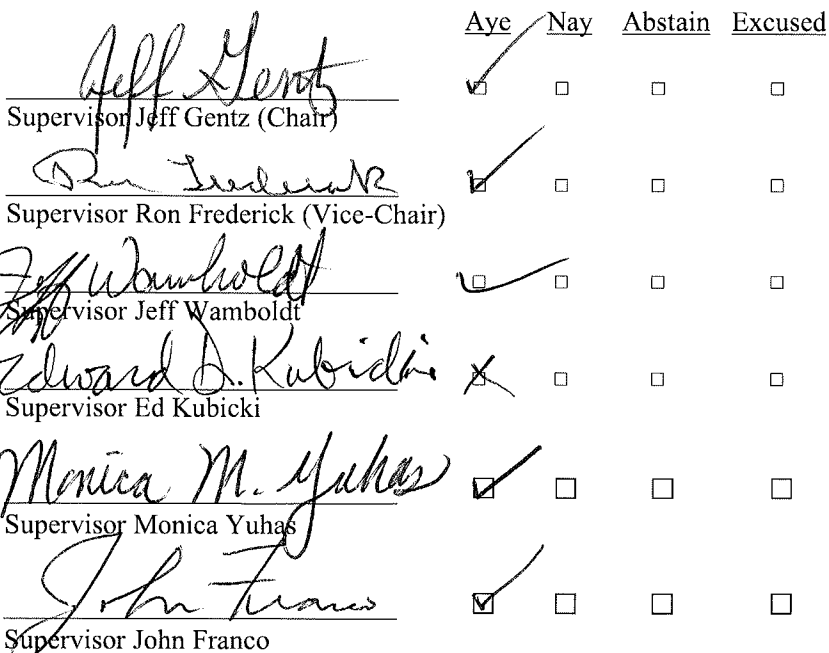 Aye Nay Abstain Excused
Jeff Gentz ✓ ☐ ☐ ☐
Supervisor Jeff Gentz (Chair)
Ron Frederick ✓ ☐ ☐ ☐
Supervisor Ron Frederick (Vice-Chair)
Jeff Wamboldt ✓ ☐ ☐ ☐
Supervisor Jeff Wamboldt
Edward D. Kubicki ☒ ☐ ☐ ☐
Supervisor Ed Kubicki
Monica M. Yuhas ✓ ☐ ☐ ☐
Supervisor Monica Yuhas
John Franco ✓ ☐ ☐ ☐
Supervisor John Franco